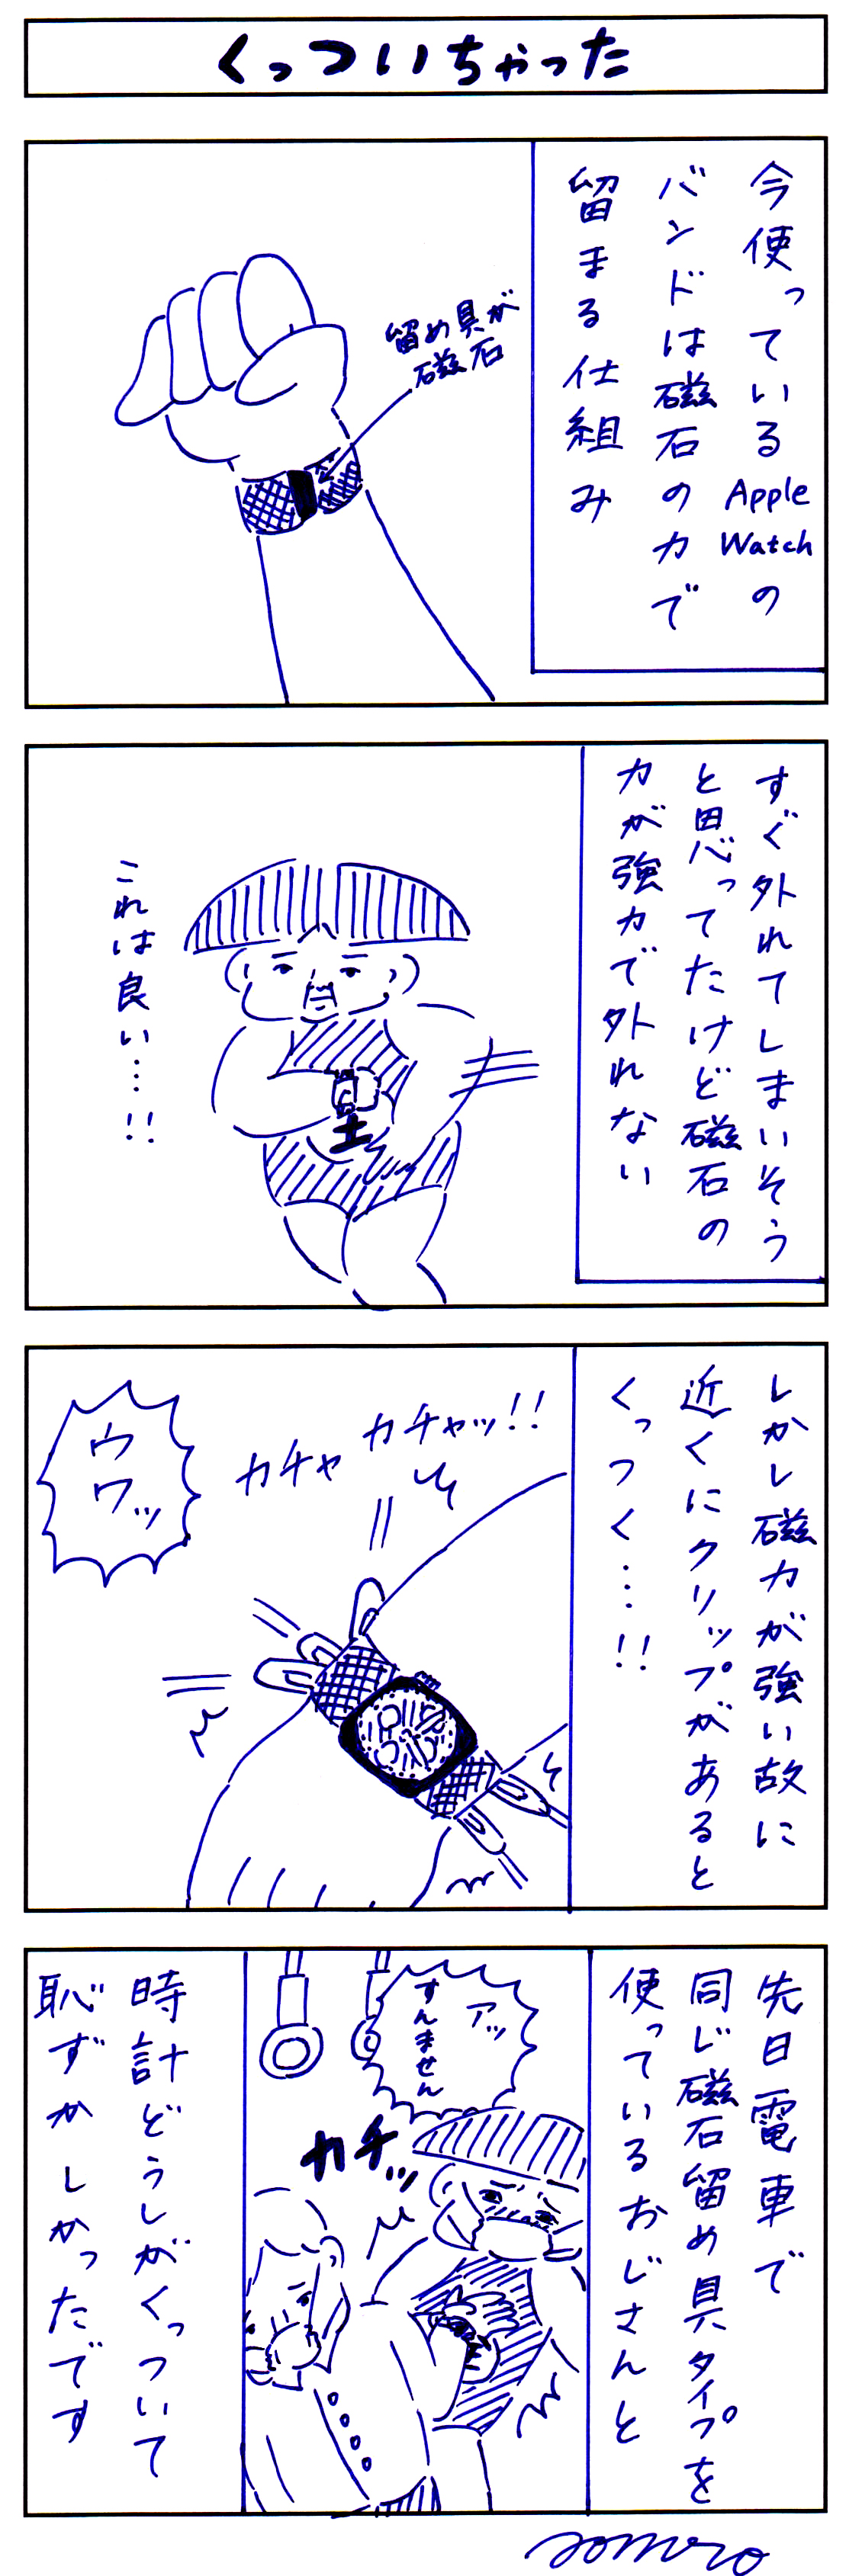 くっついちゃった
今使っているApple Watchの
バンドは磁石の力で
留まる仕組み
留め具が
磁石
すぐ外れてしまいそう
と思ってたけど磁石の
力が強力で外れない
これは良い…!!
しかし磁力が強い故に
近くにクリップがあると
くっつく…!!
カチャッ!!
カチャ
ウワッ
先日電車で
同じ磁石留め具タイプを
使っているおじさんと
アッ
すんません
カチッ
時計どうしがくっついて
恥ずかしかったです